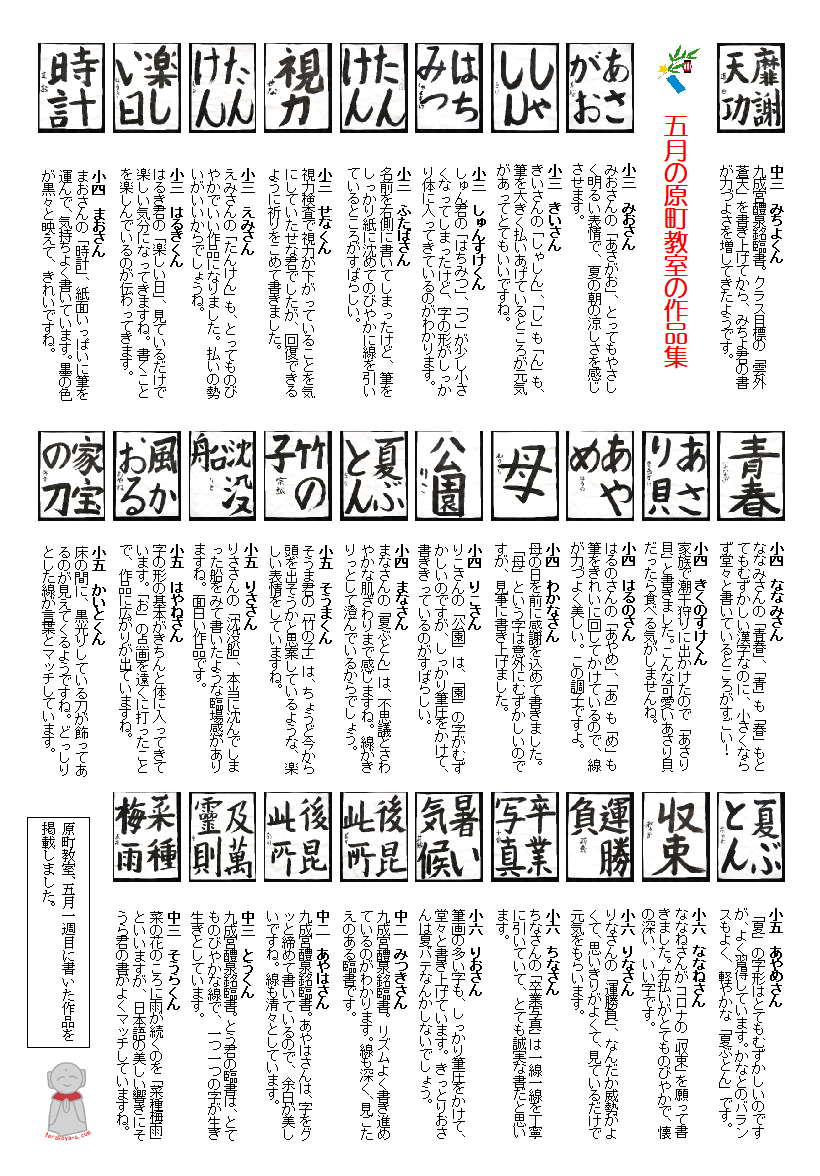 五月の原町教室の作品集
靡謝
天功
中三 みちよくん
九成宮醴泉銘臨書。クラス目標の「雲外
蒼天」を書き上げてから、みちよ君の書
が力づよさを増してきたようです。
あさ
がお
小三 みおさん
みおさんの「あさがお」、とってもやさし
く明るい表情で、夏の朝の涼しさを感じ
させます。
しゃ
しん
小三 きいさん
きいさんの「しゃしん」、「し」も「ん」も、
筆を大きく払いあげているところが元気
があってとてもいいですね。
はち
みつ
小三 しゅんすけくん
しゅん君の「はちみつ」、「つ」が少し小さ
くなってしまったけど、字の形がしっか
り体に入ってきているのがわかります。
たん
けん
小三 ふたばさん
名前を右側に書いてしまったけど、筆を
しっかり紙に沈めてのびやかに線を引い
ているところがすばらしい。
視力
小三 せなくん
視力検査で視力が下がっていることを気
にしていたせな君でしたが、回復できる
ように祈りをこめて書きました。
たん
けん
小三 えみさん
えみさんの「たんけん」も、とってものび
やかでいい作品になりました。払いの勢
いがいいからでしょうね。
楽し
い日
小三 はるきくん
はるき君の「楽しい日」、見ているだけで
楽しい気分になってきますね。書くこと
を楽しんでいるのが伝わってきます。
時計
小四 まおさん
まおさんの「時計」、紙面いっぱいに筆を
運んで、気持ちよく書いています。墨の色
が黒々と映えて、きれいですね。
青春
小四 ななみさん
ななみさんの「青春」、「青」も「春」もと
てもむずかしい漢字なのに、小さくなら
ず堂々と書いているところがすごい！
あさ
り貝
小四 きくのすけくん
家族で潮干狩りに出かけたので「あさり
貝」と書きました。こんな可愛いあさり貝
だったら食べる気がしませんね。
あや
め
小四 はるのさん
はるのさんの「あやめ」、「あ」も「め」も
筆をきれいに回してかけているので、線
が力づよく美しい。この調子ですよ。
母
小四 わかなさん
母の日を前に感謝を込めて書きました。
「母」という字は意外にむずかしいので
すが、見事に書き上げました。
公園
小四 りこさん
りこさんの「公園」は、「園」の字がむず
かしいのですが、しっかり筆圧をかけて、
書ききっているのがすばらしい。
夏ぶ
とん
小四 まなさん
まなさんの「夏ぶとん」は、不思議とさわ
やかな肌ざわりまで感じますね。線がき
りっとして澄んでいるからでしょう。
竹の
子
小五 そうまくん
そうま君の「竹の子」は、ちょうど今から
頭を出そうかと思案しているような、楽
しい表情をしていますね。
沈没
船
小五 りささん
りささんの「沈没船」、本当に沈んでしま
った船をみて書いたような臨場感があり
ますね。面白い作品です。
風か
おる
小五 はやねさん
字の形の基本がきちんと体に入ってきて
います。「お」の点画を遠くに打ったこと
で、作品に広がりが出ていますね。
家宝
の刀
小五 かいとくん
床の間に、黒光りしている刀が飾ってあ
るのが見えてくるようですね。どっしり
とした線が言葉とマッチしています。
夏ぶ
とん
小五 あやめさん
「夏」の字形はとてもむずかしいのです
が、よく習得しています。かなとのバラン
スもよく、軽やかな「夏ぶとん」です。
収束
小六 ななねさん
ななねさんがコロナの「収束」を願って書
きました。右払いがとてものびやかで、懐
の深い、いい字です。
運勝
負
小六 りなさん
りなさんの「運勝負」、なんだか威勢がよ
くて、思いきりがよくて、見ているだけで
元気をもらいます。
卒業
写真
小六 ちなさん
ちなさんの「卒業写真」は一線一線を丁寧
に引いていて、とても誠実な書だと思い
ます。
暑い
気候
小六 りおさん
筆画の多い字も、しっかり筆圧をかけて、
堂々と書き上げています。きっとりおさ
んは夏バテなんかしないでしょう。
後昆
此所
中二 みつきさん
九成宮醴泉銘臨書。リズムよく書き進め
ているのがわかります。線も深く、見ごた
えのある臨書です。
後昆
此所
中二 あやはさん
九成宮醴泉銘臨書。あやはさんは、字をグ
ッと締めて書いているので、余白が美し
いですね。線も清々としています。
及萬
靈則
中三 とうくん
九成宮醴泉銘臨書。とう君の臨書は、とて
ものびやかな線で、一つ一つの字が生き
生きとしています。
菜種
梅雨
中三 そうらくん
菜の花のころに雨が続くのを「菜種梅雨」
といいますが、日本語の美しい響きにそ
うら君の書がよくマッチしていますね。
原町教室、五月一週目に書いた作品を
掲載しました。
terakoya-s.com